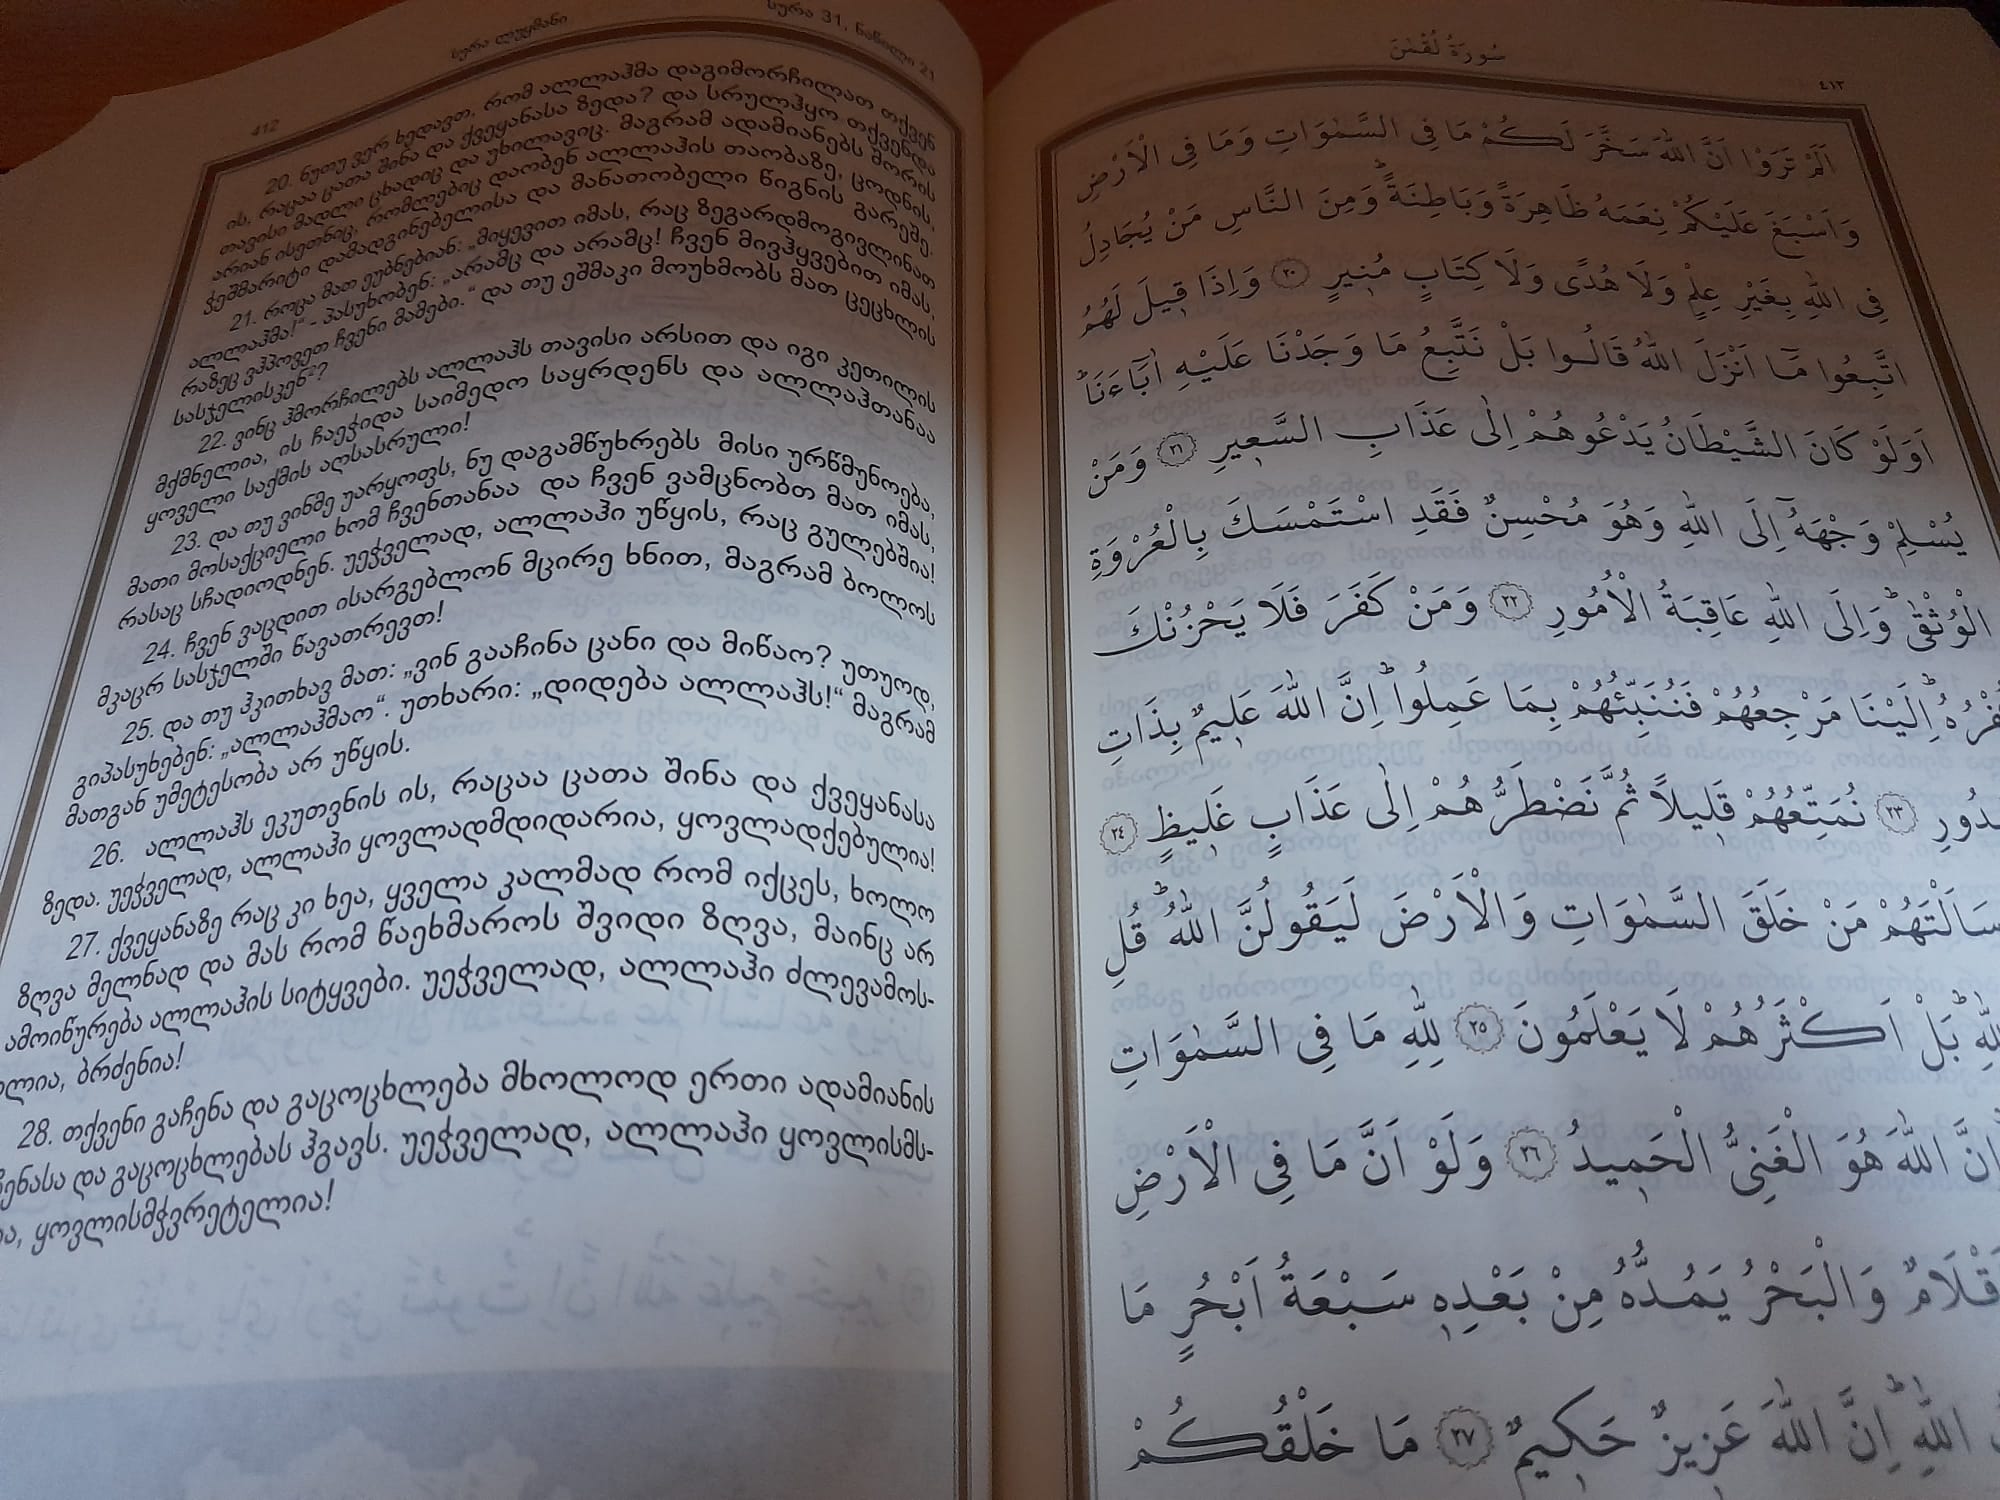 სურა ლუყმანი
სურა 31, ნაწილი 21
412
20. ნუთუ ვერ ხედავთ, რომ ალლაჰმა დაგიმორჩილათ თქვენ
ის, რაცაა ცათა შინა და ქვეყანასა ზედა? და სრულჰყო თქვენდა
თავისი მადლი ცხადიც და უხილავიც. მაგრამ ადამიანებს შორის
არიან ისეთნიც, რომლებიც დაობენ ალლაჰის თაობაზე, ცოდნის,
ჭეშმარიტი დამადგინებელისა და მანათობელი წიგნის გარეშე.
21. როცა მათ ეუბნებიან: „მიყევით იმას, რაც ზეგარდმოგივლინათ
ალლაჰმა!“ - პასუხობენ: „არამც და არამც! ჩვენ მივჰყვებით იმას,
რაზეც ვჰპოვეთ ჩვენი მამები.“ და თუ ეშმაკი მოუხმობს მათ ცეცხლის
სასჯელისკენ²?
22. ვინც ჰმორჩილებს ალლაჰს თავისი არსით და იგი კეთილის
მქმნელია, ის ჩაეჭიდა საიმედო საყრდენს და ალლაჰთანაა
ყოველი საქმის აღსასრული!
23. და თუ ვინმე უარყოფს, ნუ დაგამწუხრებს მისი ურწმუნოება,
მათი მოსაქციელი ხომ ჩვენთანაა და ჩვენ ვამცნობთ მათ იმას,
რასაც სჩადიოდნენ. უეჭველად, ალლაჰი უწყის, რაც გულებშია!
24. ჩვენ ვაცდით ისარგებლონ მცირე ხნით, მაგრამ ბოლოს
მკაცრ სასჯელში წავათრევთ!
25. და თუ ჰკითხავ მათ: „ვინ გააჩინა ცანი და მიწაო? უთუოდ,
გიპასუხებენ: „ალლაჰმაო“. უთხარი: „დიდება ალლაჰს!“ მაგრამ
მათგან უმეტესობა არ უწყის.
26. ალლაჰს ეკუთვნის ის, რაცაა ცათა შინა და ქვეყანასა
ზედა. უეჭველად, ალლაჰი ყოვლადმდიდარია, ყოვლადქებულია!
27. ქვეყანაზე რაც კი ხეა, ყველა კალმად რომ იქცეს, ხოლო
ზღვა მელნად და მას რომ წაეხმაროს შვიდი ზღვა, მაინც არ
ამოიწურება ალლაჰის სიტყვები. უეჭველად, ალლაჰი ძლევამოს-
ილია, ბრძენია!
28. თქვენი გაჩენა და გაცოცხლება მხოლოდ ერთი ადამიანის
ჩენასა და გაცოცხლებას ჰგავს. უეჭველად, ალლაჰი ყოვლისმს-
ია, ყოვლისმჭვრეტელია!
سُورَةُ لُقْمٰنَ
٤١٣
اَلَمْ تَرَوْا اَنَّ اللّٰهَ سَخَّرَ لَكُمْ مَا فِي السَّمٰوَاتِ وَمَا فِي الْاَرْضِ
وَاَسْبَغَ عَلَيْكُمْ نِعَمَهُ ظَاهِرَةً وَبَاطِنَةًۜ وَمِنَ النَّاسِ مَنْ يُجَادِلُ
فِي اللّٰهِ بِغَيْرِ عِلْمٍ وَلَا هُدًى وَلَا كِتَابٍ مُنٖيرٍ ٢٠ وَاِذَا قٖيلَ لَهُمُ
اتَّبِعُوا مَٓا اَنْزَلَ اللّٰهُ قَالُوا بَلْ نَتَّبِعُ مَا وَجَدْنَا عَلَيْهِ اٰبَٓاءَنَاۜ
اَوَلَوْ كَانَ الشَّيْطَانُ يَدْعُوهُمْ اِلٰى عَذَابِ السَّعٖيرِ ٢١ وَمَنْ
يُسْلِمْ وَجْهَهُٓ اِلَى اللّٰهِ وَهُوَ مُحْسِنٌ فَقَدِ اسْتَمْسَكَ بِالْعُرْوَةِ
الْوُثْقٰىۜ وَاِلَى اللّٰهِ عَاقِبَةُ الْاُمُورِ ٢٢ وَمَنْ كَفَرَ فَلَا يَحْزُنْكَ
كُفْرُهُۜ اِلَيْنَا مَرْجِعُهُمْ فَنُنَبِّئُهُمْ بِمَا عَمِلُواۜ اِنَّ اللّٰهَ عَلٖيمٌ بِذَاتِ
الصُّدُورِ ٢٣ نُمَتِّعُهُمْ قَلٖيلًا ثُمَّ نَضْطَرُّهُمْ اِلٰى عَذَابٍ غَلٖيظٍ ٢٤
سَاَلْتَهُمْ مَنْ خَلَقَ السَّمٰوَاتِ وَالْاَرْضَ لَيَقُولُنَّ اللّٰهُۜ قُلِ
لِلّٰهِۜ بَلْ اَكْثَرُهُمْ لَا يَعْلَمُونَ ٢٥ لِلّٰهِ مَا فِي السَّمٰوَاتِ
اِنَّ اللّٰهَ هُوَ الْغَنِيُّ الْحَمٖيدُ ٢٦ وَلَوْ اَنَّ مَا فِي الْاَرْضِ
اَقْلَامٌ وَالْبَحْرُ يَمُدُّهُ مِنْ بَعْدِهٖ سَبْعَةُ اَبْحُرٍ مَا
اللّٰهِۜ اِنَّ اللّٰهَ عَزٖيزٌ حَكٖيمٌ ٢٧ مَا خَلْقُكُمْ